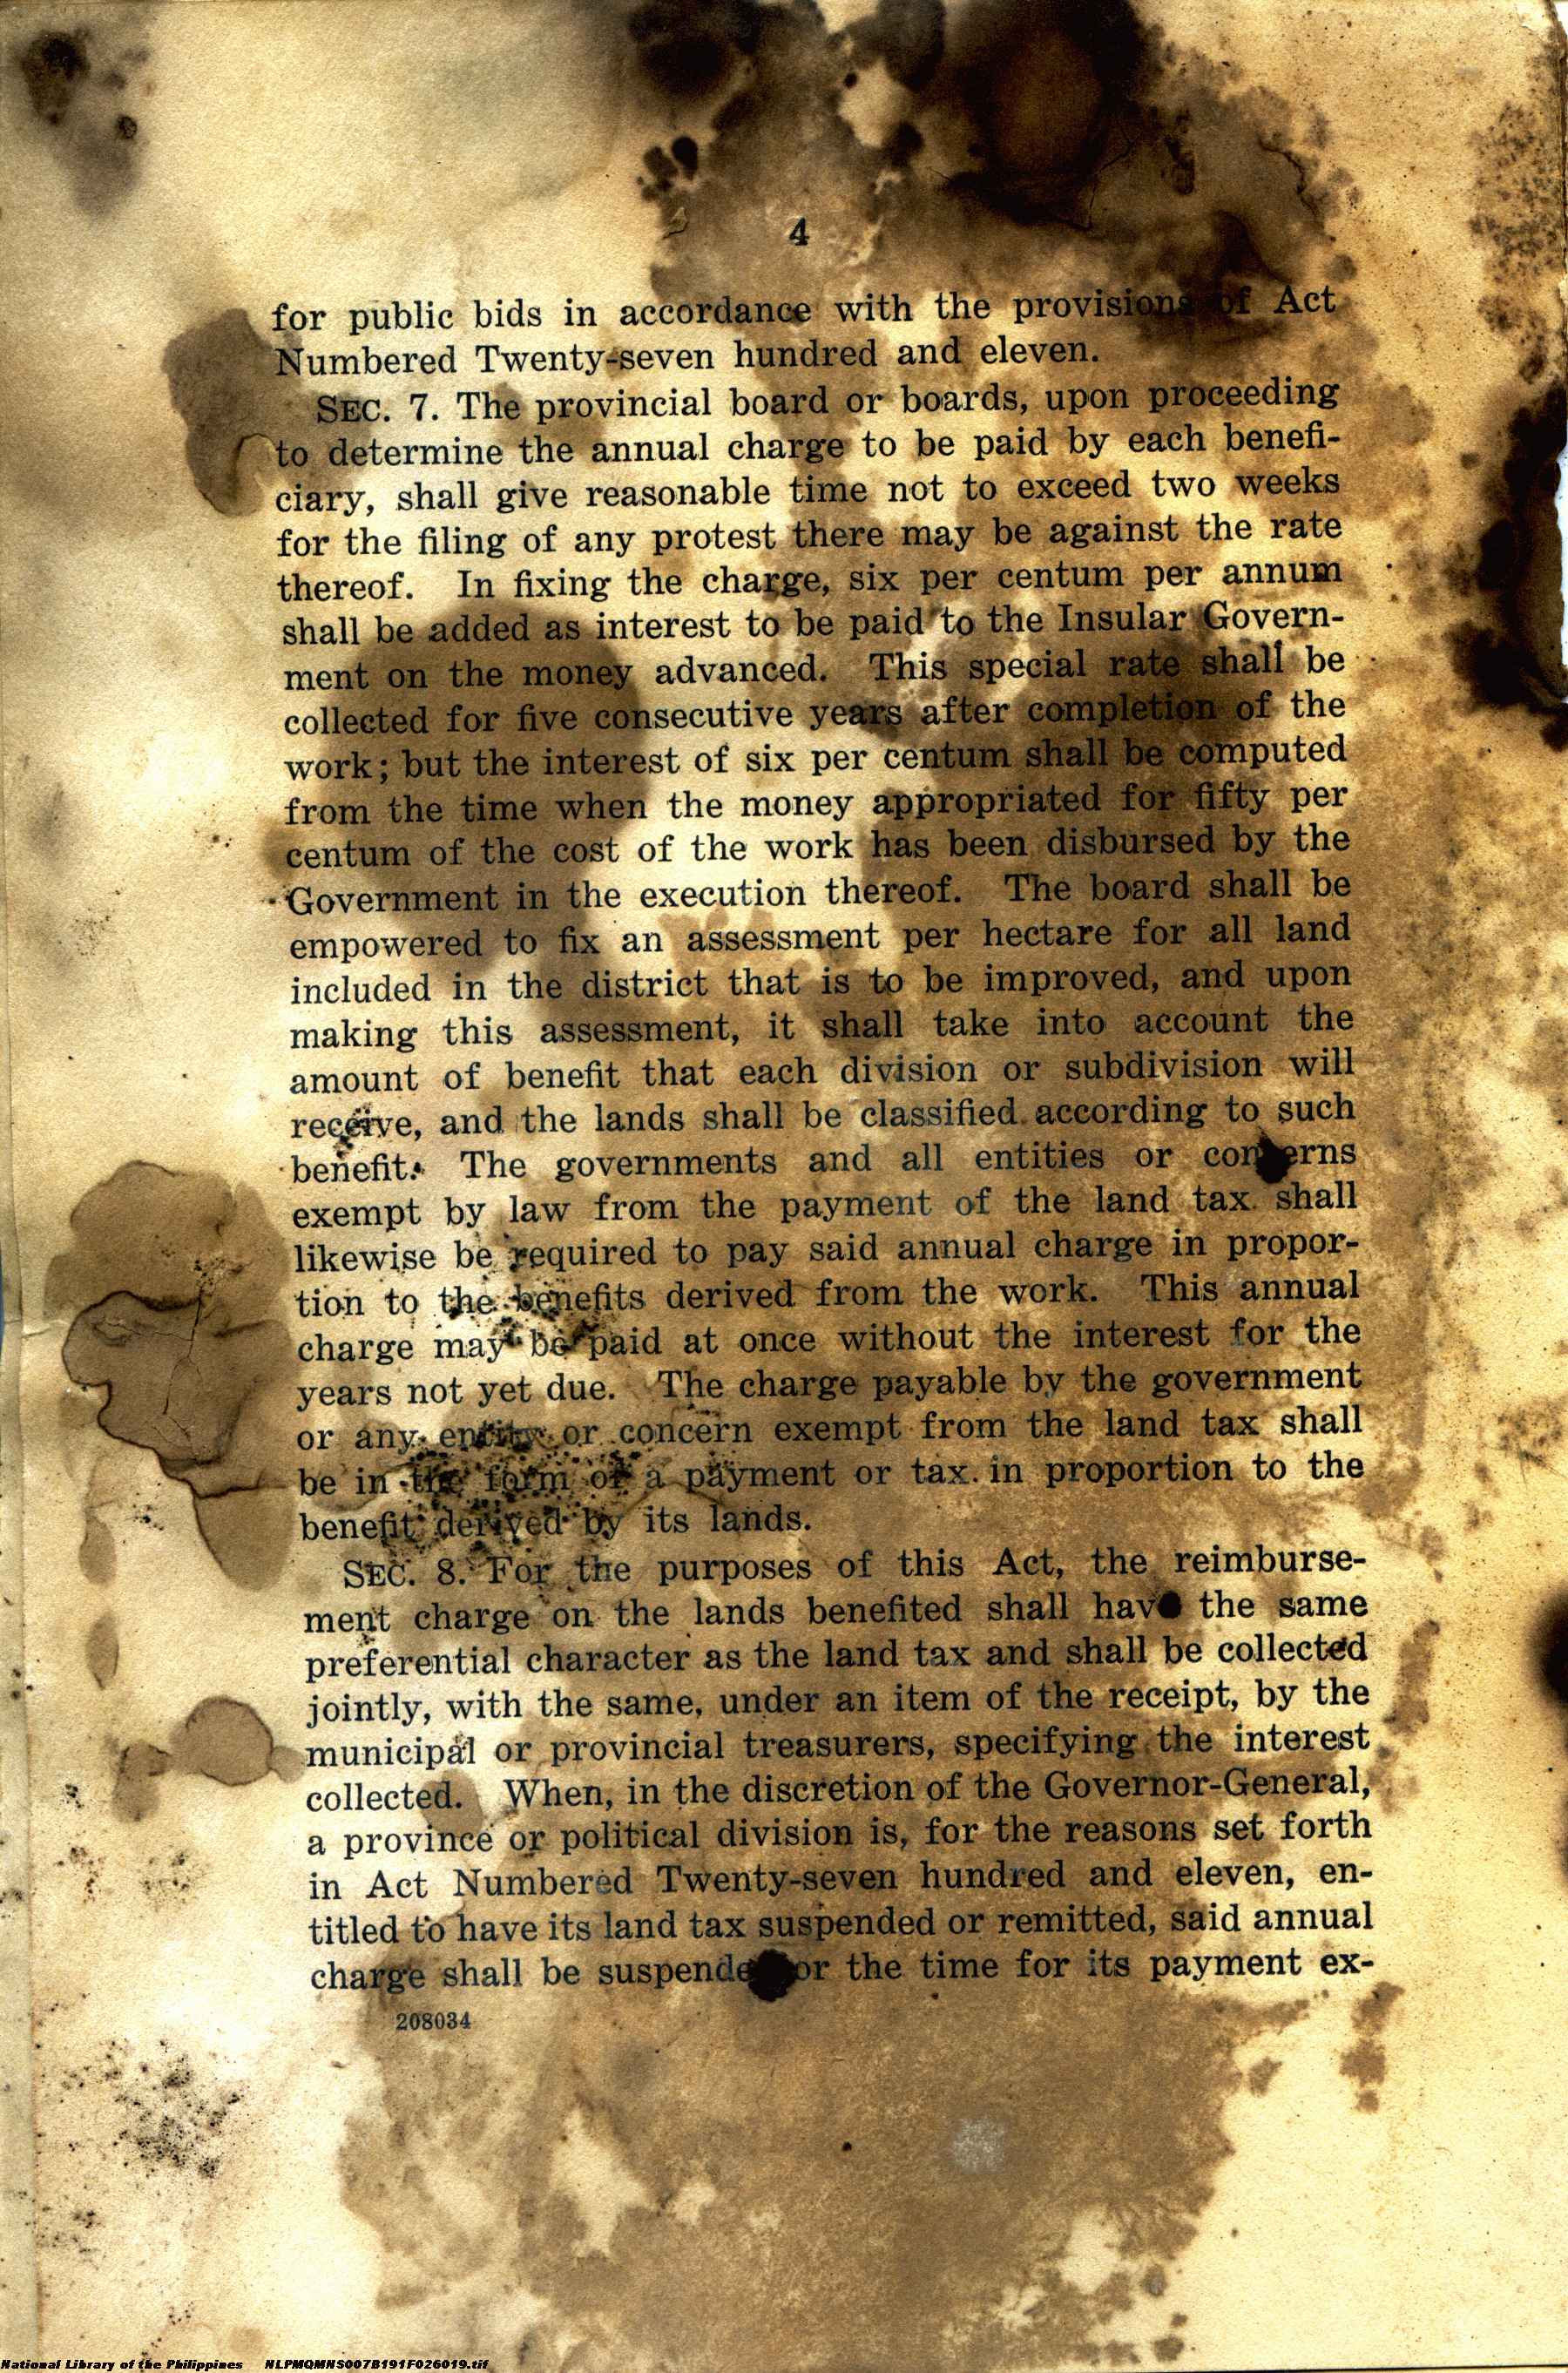 4
for public bids in accordance with the provisions of Act
Numbered Twenty-seven hundred and eleven.
SEC. 7. The provincial board or boards, upon proceeding
to determine the annual charge to be paid by each benefi-
ciary, shall give reasonable time not to exceed two weeks
for the filing of any protest there may be against the rate
thereof. In fixing the charge, six per centum per annum
shall be added as interest to be paid to the Insular Govern-
ment on the money advanced. This special rate shall be
collected for five consecutive years after completion of the
work; but the interest of six per centum shall be computed
from the time when the money appropriated for fifty per
centum of the cost of the work has been disbursed by the
Government in the execution thereof. The board shall be
empowered to fix an assessment per hectare for all land
included in the district that is to be improved, and upon
making this assessment, it shall take into account the
amount of benefit that each division or subdivision will
receive, and the lands shall be classified according to such
benefit. The governments and all entities or concerns
exempt by law from the payment of the land tax shall
likewise be required to pay said annual charge in propor-
tion to the benefits derived from the work. This annual
charge may be paid at once without the interest for the
years not yet due. The charge payable by the government
or any entity or concern exempt from the land tax shall
be in the form of a payment or tax in proportion to the
benefit derived by its lands.
SEC. 8. For the purposes of this Act, the reimburse-
ment charge on the lands benefited shall have the same
preferential character as the land tax and shall be collected
jointly, with the same, under an item of the receipt, by the
municipal or provincial treasurers, specifying the interest
collected. When, in the discretion of the Governor-General,
a province or political division is, for the reasons set forth
in Act Numbered Twenty-seven hundred and eleven, en-
titled to have its land tax suspended or remitted, said annual
charge shall be suspended or the time for its payment ex-
208034
National Library of the Philippines NLPMQMNS007B191F026019.tif